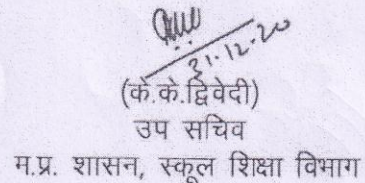 31.12.20
(के.के.द्विवेदी)
उप सचिव
म.प्र. शासन, स्कूल शिक्षा विभाग